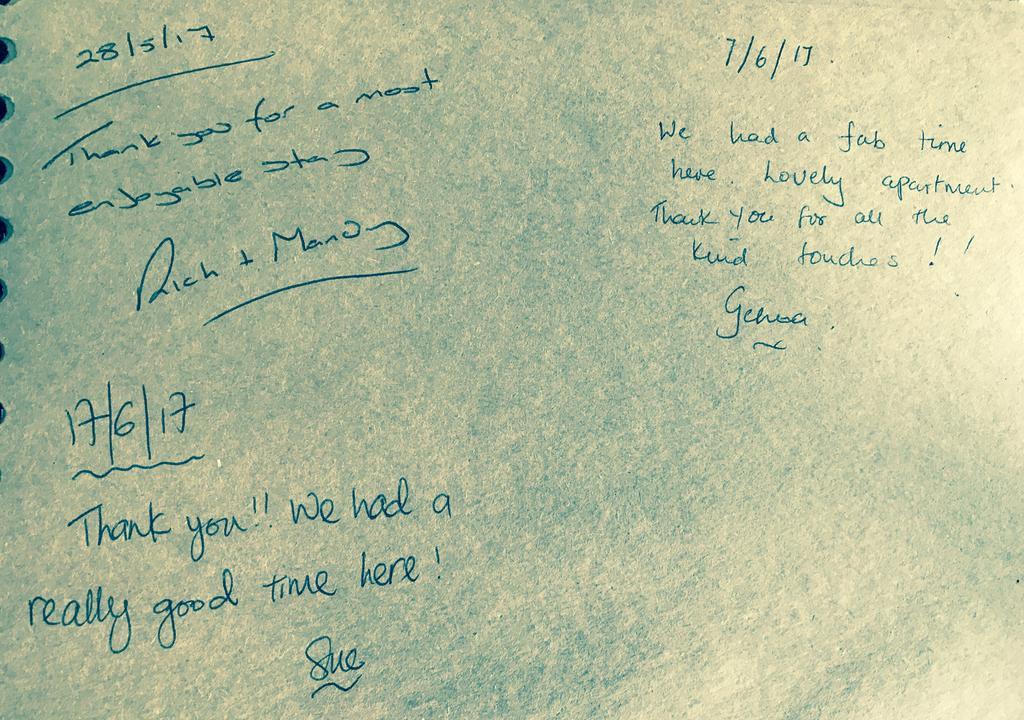 28/5/17
Thank you for a most
enjoyable stay
Rich + Mandy
7/6/17.
We had a fab time
here. Lovely apartment.
Thank you for all the
kind touches!!
17/6/17
Thank you!! We had a
really good time here!
Sue